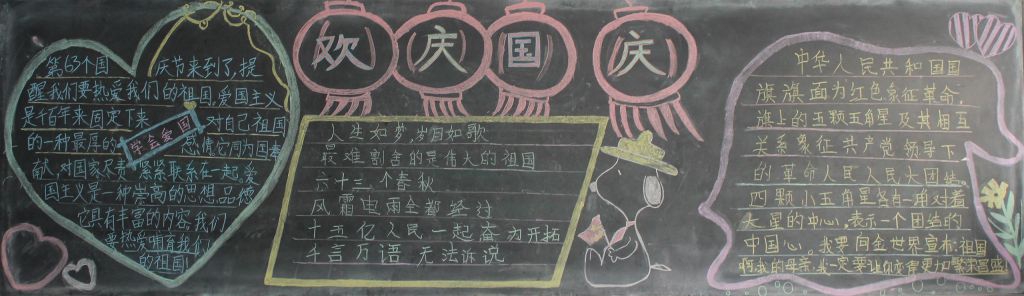 欢庆国庆
第63个国 庆节来到了,提
醒我们要热爱我们的祖国,爱国主义
是千百年来固定下来 对自己祖国
的一种最厚的
学会爱国
献,对国家尽责 紧紧联系在一起,爱
国主义是一种崇高的思想品德
它具有丰富的内容,我们
要热爱
的祖国
人生如梦,岁月如歌
最难割舍的是伟大的祖国
六十三个春秋
风霜虫雨全都经过
十五亿人民一起奋力开拓
千言万语 无法诉说
中华人民共和国国
旗旗面为红色象征革命,
旗上的五颗五角星及其相互
关系象征共产党领导下
的革命人民人民大团结
四颗小五角星各有一角对着
大星的中心,表示一个团结的
中国心,我要向全世界宣布:祖国
啊我的母亲,我一定要让你变得更加繁荣富强